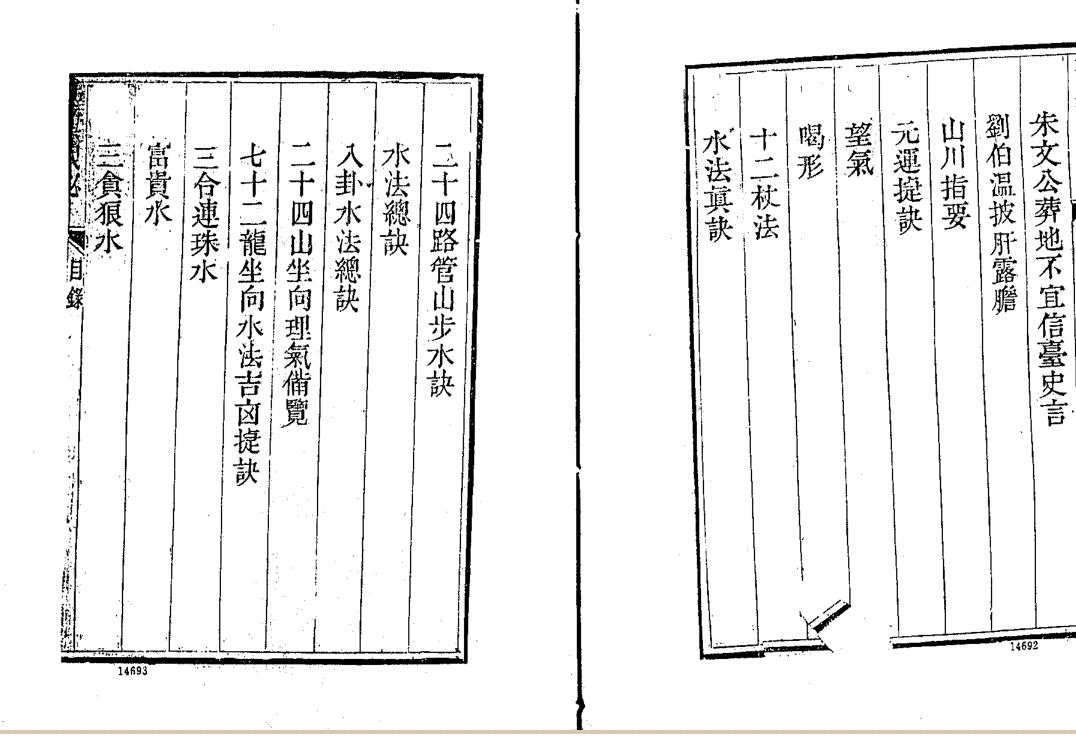 朱文公葬地不宜信臺史言
劉伯温披肝露膽
山川指要
元運㨗訣
望氣
喝形
十二杖法
水法眞訣
14692
二十四路管山步水訣
水法總訣
八卦水法總訣
二十四山坐向理氣備覽
七十二龍坐向水法吉凶㨗訣
三合連珠水
富貴水
三貪狼水
目錄
14693